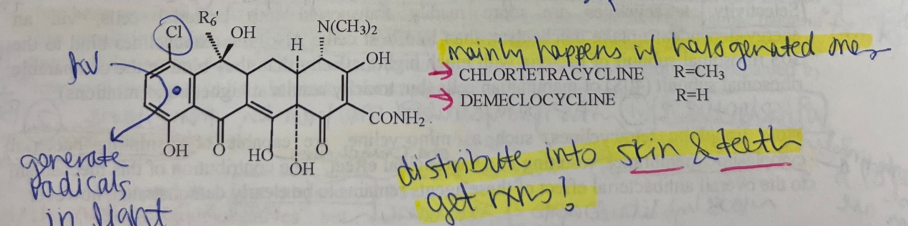 Cl
R6'
OH
H
N(CH3)2
OH
CONH2
OH
O
HO
OH
O
hν
generate
radicals
in light
mainly happens w/ halogenated ones
→ CHLORTETRACYCLINE R=CH3
→ DEMECLOCYCLINE R=H
distribute into skin & teeth
get rxns!